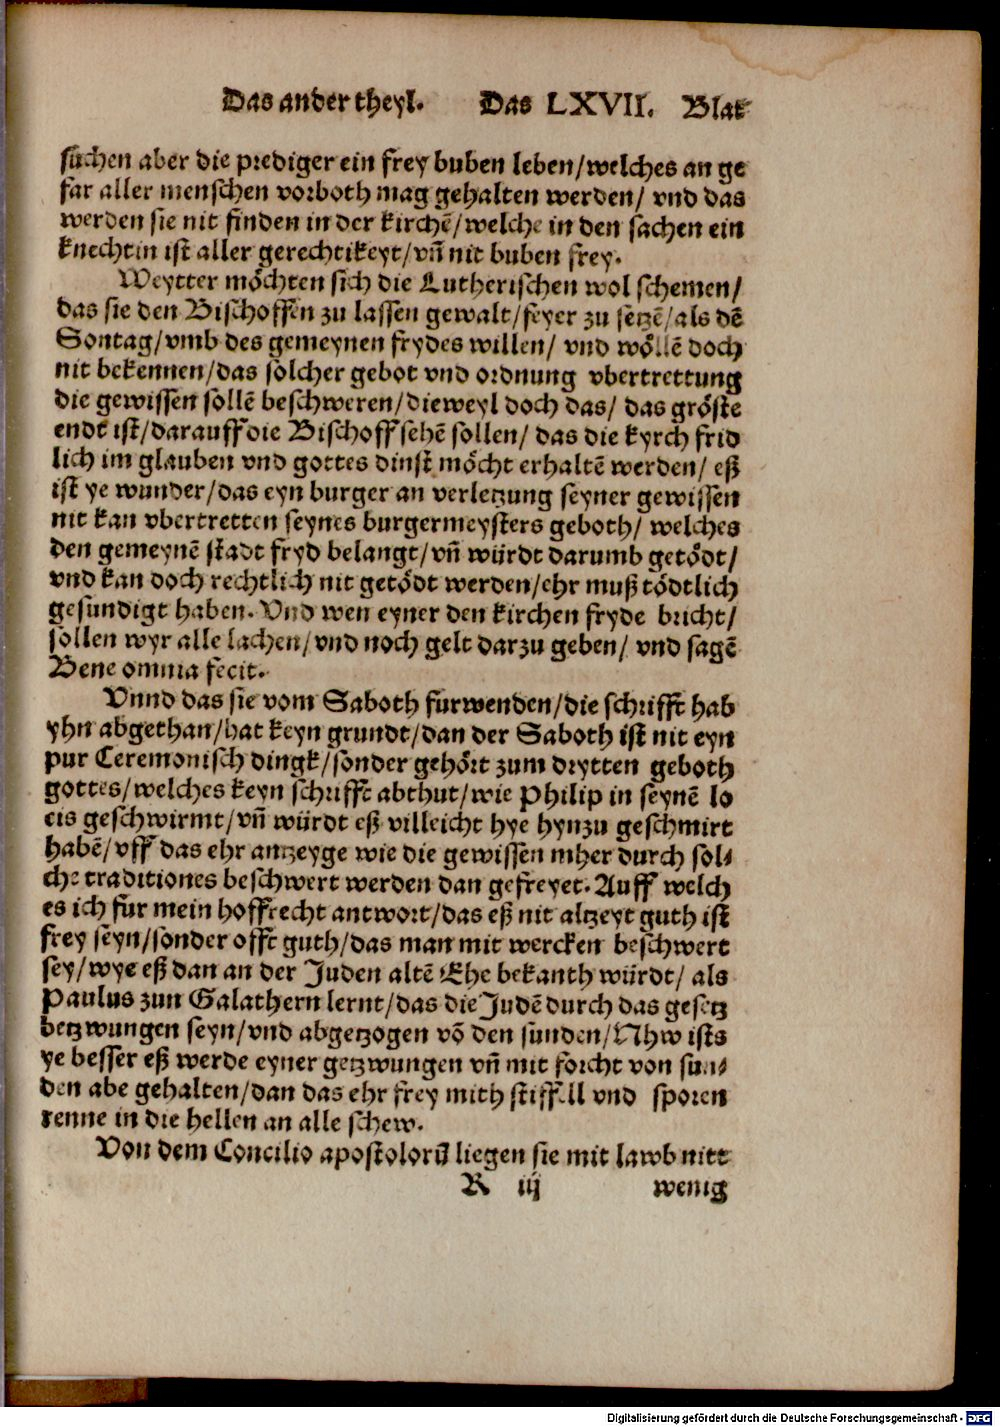 Das ander theyl. Das LXVII. Blat
suchen aber die prediger ein frey buben leben/welches an ge
far aller menschen vorboth mag gehalten werden/ vnd das
werden sie nit finden in der kirchē/welche in den sachen ein
knechtin ist aller gerechtikeyt/vn̄ nit buben frey.
Weytter möchten sich die Lutherischen wol schemen/
das sie den Bischoffen zu lassen gewalt/feyer zu setzē/als dē
Sontag/vmb des gemeynen frydes willen/ vnd wöllē doch
nit bekennen/das solcher gebot vnd ordnung vbertrettung
die gewissen sollē beschweren/dieweyl doch das/ das gröste
endt ist/darauff die Bischoff sehē sollen/ das die kyrch frid
lich im glauben vnd gottes dinst möcht erhaltē werden/ eß
ist ye wunder/das eyn burger an verletzung seyner gewissen
nit kan vbertretten seynes burgermeysters geboth/ welches
den gemeynē stadt fryd belangt/vn̄ würdt darumb getödt/
vnd kan doch rechtlich nit getödt werden/ehr muß tödtlich
gesundigt haben. Vnd wen eyner den kirchen fryde bricht/
sollen wyr alle lachen/vnd noch gelt darzu geben/ vnd sagē
Bene omnia fecit.
Vnnd das sie vom Saboth furwenden/die schrifft hab
yhn abgethan/hat keyn grundt/dan der Saboth ist nit eyn
pur Ceremonisch dingk/sonder gehört zum drytten geboth
gottes/welches keyn schrifft abthut/wie Philip in seynē lo
cis geschwirmt/vn̄ würdt eß villeicht hye hynzu geschmirt
habē/vff das ehr antzeyge wie die gewissen mher durch sol⸗
che traditiones beschwert werden dan gefreyet. Auff welch
es ich fur mein hoffrecht antwort/das eß nit altzeyt guth ist
frey seyn/sonder offt guth/das man mit wercken beschwert
sey/wye eß dan an der Juden altē Ehe bekanth würdt/ als
Paulus zun Galathern lernt/das die Judē durch das gesetz
betzwungen seyn/vnd abgetzogen vō den sunden/Nhw ists
ye besser eß werde eyner getzwungen vn̄ mit forcht von sun⸗
den abe gehalten/dan das ehr frey mith stiffell vnd sporen
renne in die hellen an alle schew.
Von dem Concilio apostolorū liegen sie mit lawb nitt
R iij wenig
Digitalisierung gefördert durch die Deutsche Forschungsgemeinschaft - DFG